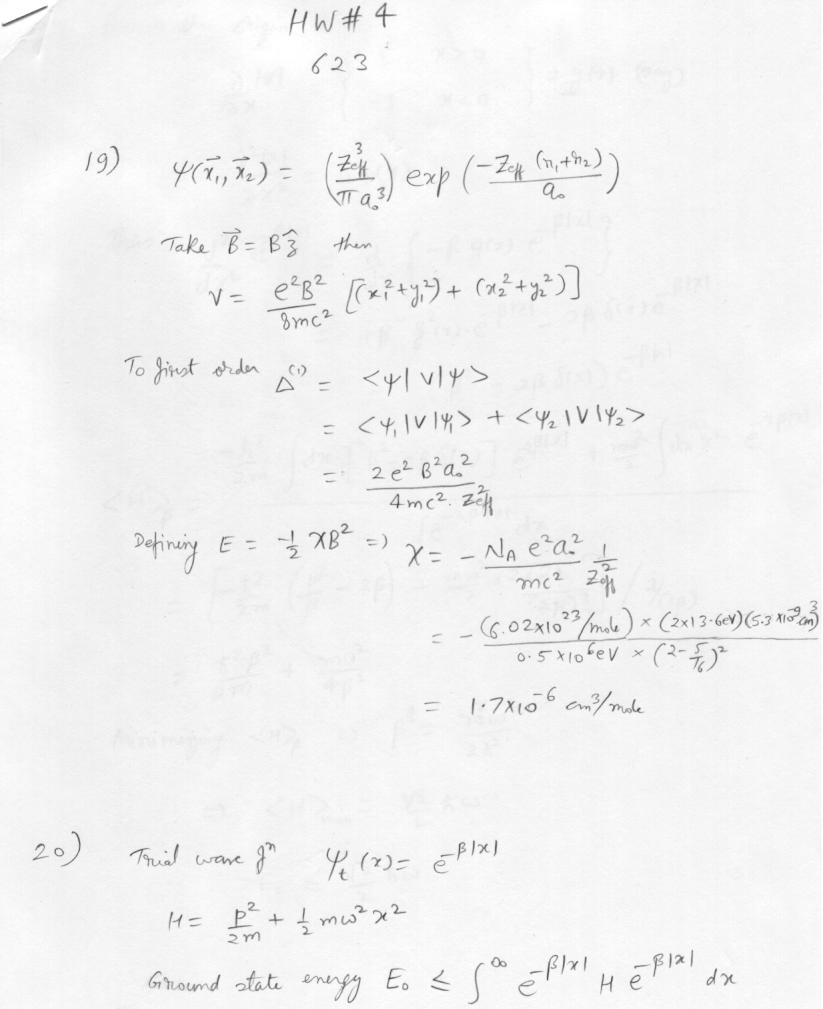 HW# 4
623
19) ψ(x⃗₁, x⃗₂) = (Z³eff / π a₀³) exp (−Zeff (r₁+r₂) / a₀)
Take B⃗ = Bẑ then
V = e²B² / 8mc² [(x₁²+y₁²) + (x₂²+y₂²)]
To first order Δ⁽¹⁾ = <ψ|V|ψ>
= <ψ₁|V|ψ₁> + <ψ₂|V|ψ₂>
= 2e² B² a₀² / 4mc². Z²eff
Defining E = −½ χB² => χ = − N_A e²a₀² / mc² 1 / Z²eff
= − (6.02×10²³/mole) × (2×13.6eV)(5.3×10⁻⁹cm)³ / 0.5×10⁶eV × (2−5/16)²
= 1.7×10⁻⁶ cm³/mole
20) Trial wave fⁿ ψₜ(x) = e^(−β|x|)
H = p²/2m + ½ mω²x²
Ground state energy E₀ ≤ ∫^∞ e^(−β|x|) H e^(−β|x|) dx